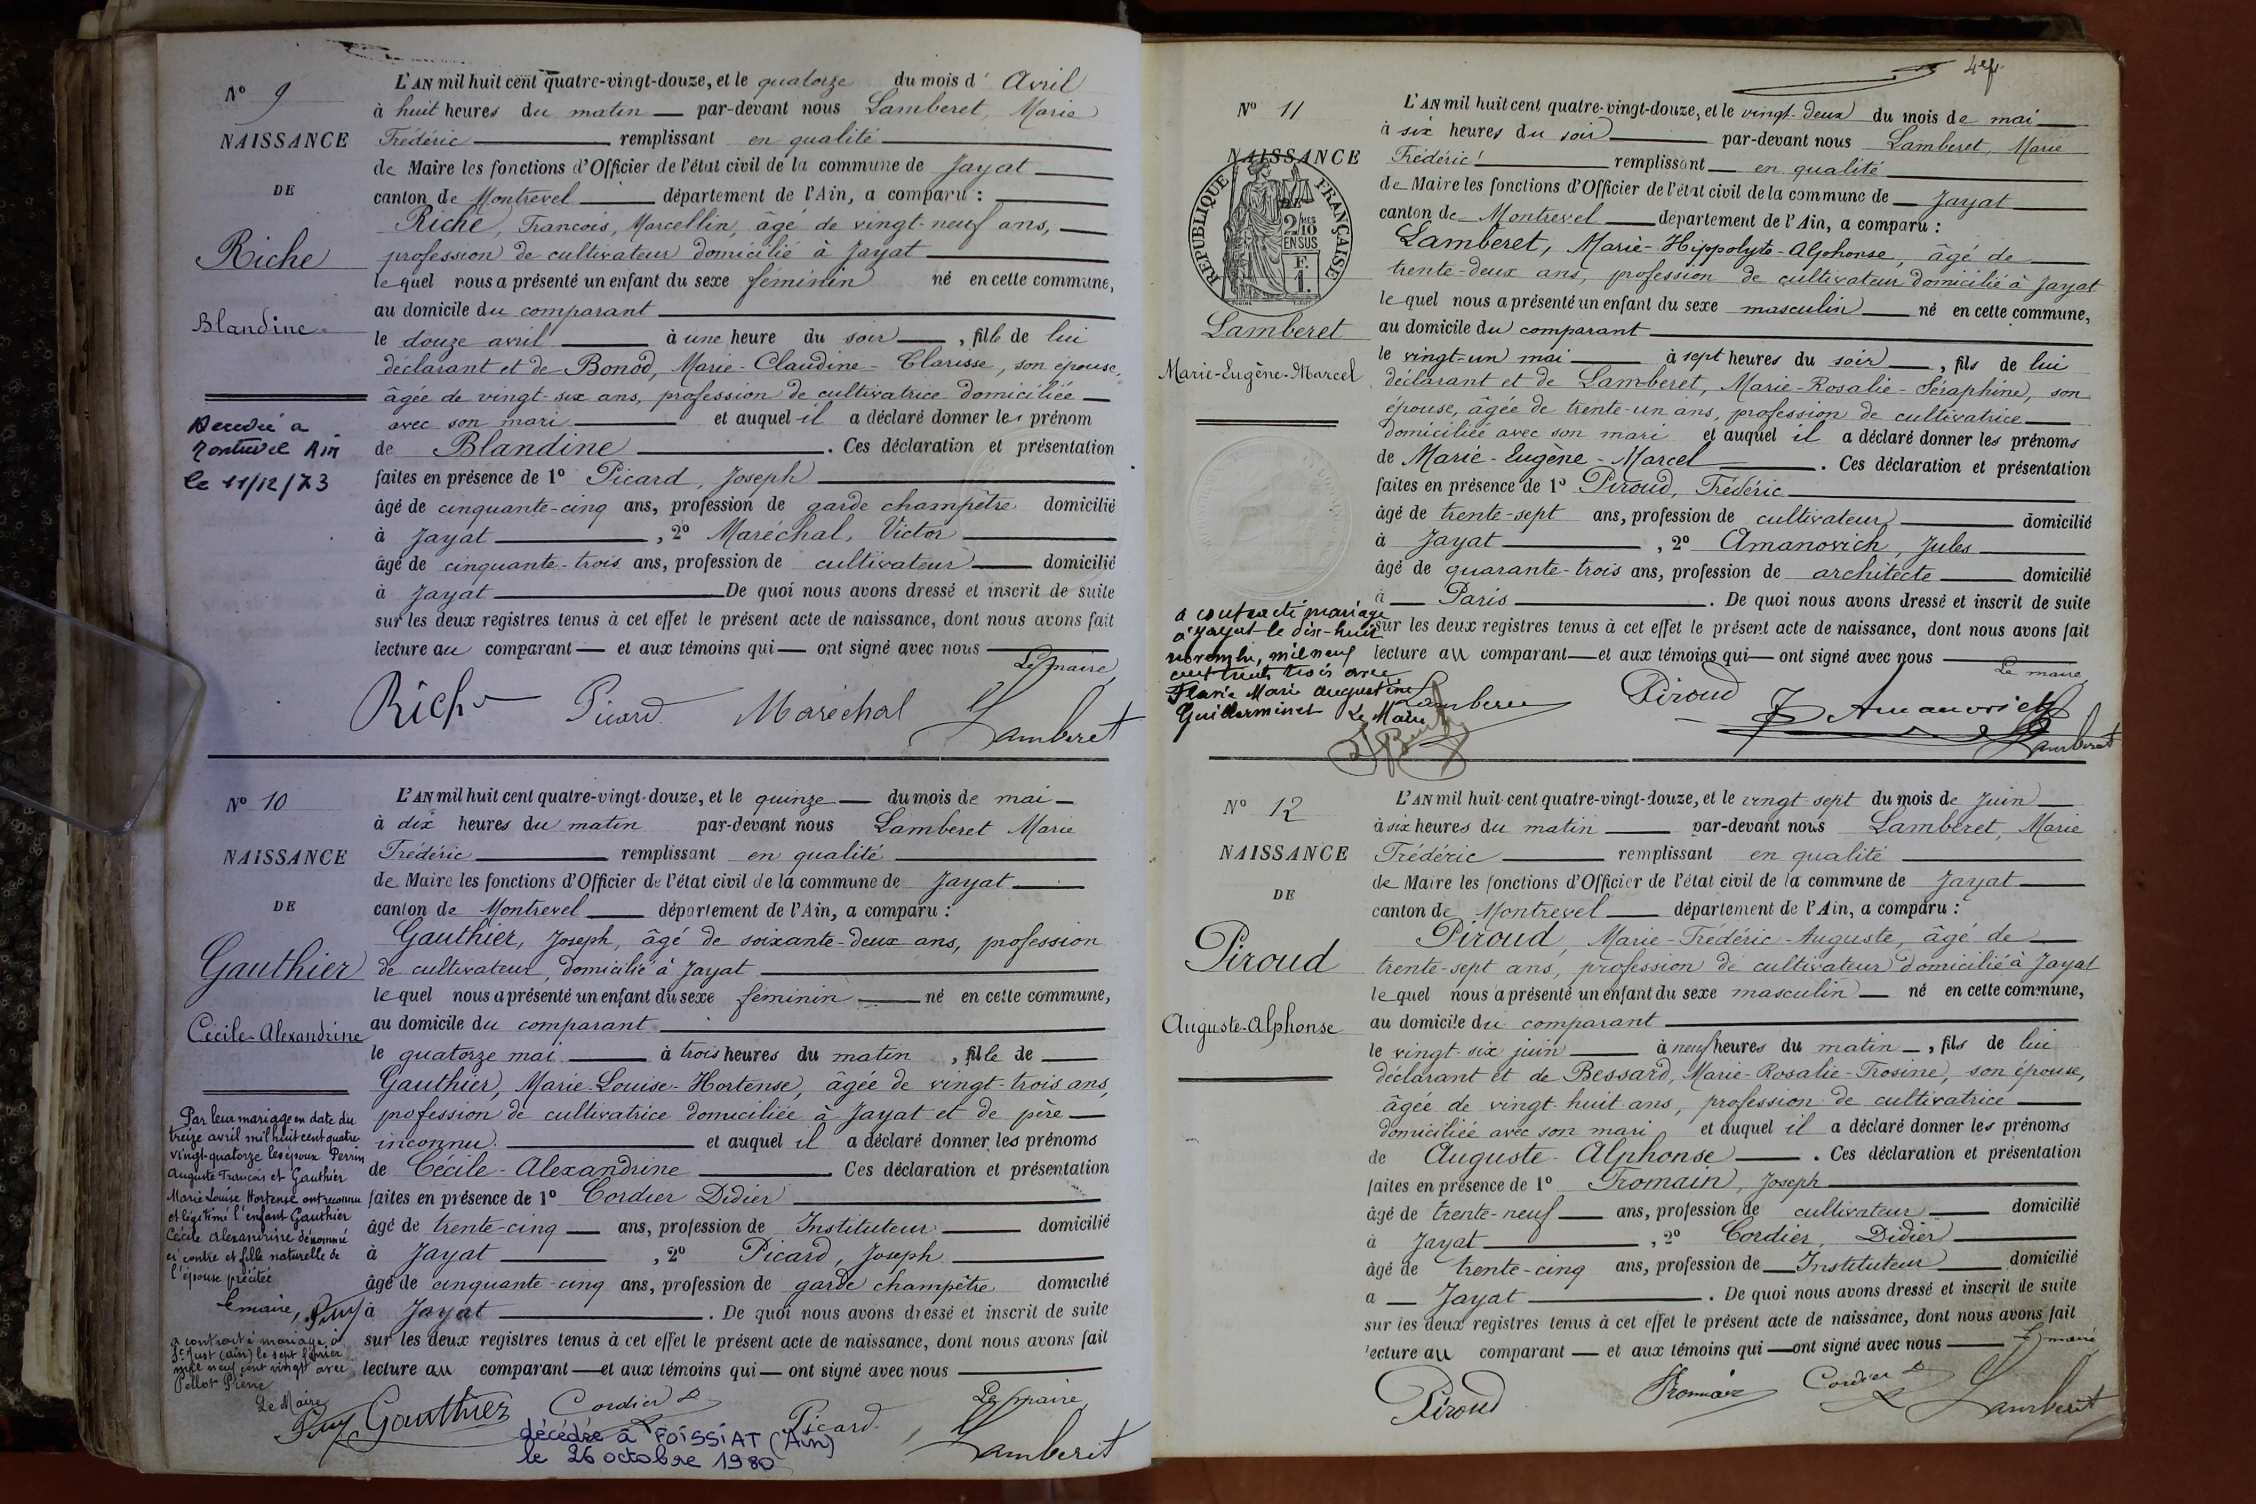 N° 9
NAISSANCE
DE
Riche
Blandine
Décédée à
Montrevel Ain
le 11/12/73
L'AN mil huit cent quatre-vingt-douze, et le quatorze du mois d' Avril
à huit heures du matin par-devant nous Lamberet, Marie
Frédéric remplissant en qualité
de Maire les fonctions d'Officier de l'état civil de la commune de Jayat
canton de Montrevel département de l'Ain, a comparu :
Riche, Francois, Marcellin, âgé de vingt-neuf ans,
profession de cultivateur domicilié à Jayat
lequel nous a présenté un enfant du sexe féminin né en cette commune,
au domicile du comparant
le douze avril à une heure du soir, fille de lui
déclarant et de Bonod, Marie-Claudine-Clarisse, son épouse,
âgée de vingt-six ans, profession de cultivatrice domiciliée
avec son mari et auquel il a déclaré donner les prénom
de Blandine. Ces déclaration et présentation
faites en présence de 1° Picard, Joseph
âgé de cinquante-cinq ans, profession de garde champêtre domicilié
à Jayat, 2° Maréchal, Victor
âgé de cinquante-trois ans, profession de cultivateur domicilié
à Jayat De quoi nous avons dressé et inscrit de suite
sur les deux registres tenus à cet effet le présent acte de naissance, dont nous avons fait
lecture au comparant et aux témoins qui ont signé avec nous
Le maire
Riche Picard Maréchal Lamberet
N° 10
NAISSANCE
DE
Gauthier
Cécile-Alexandrine
Par leur mariage en date du
treize avril mil huit cent quatre
vingt-quatorze les époux Perrin
Auguste François et Gauthier
Marie Louise Hortense ont reconnu
et légitimé l'enfant Gauthier
Cécile Alexandrine dénommé
ci contre et fille naturelle de
l'épouse précitée
Le maire,
a contracté mariage à
St Just (Ain) le sept février
mil neuf cent vingt avec
Pellot Pierre
Le Maire
L'AN mil huit cent quatre-vingt-douze, et le quinze du mois de mai
à dix heures du matin par-devant nous Lamberet Marie
Frédéric remplissant en qualité
de Maire les fonctions d'Officier de l'état civil de la commune de Jayat
canton de Montrevel département de l'Ain, a comparu :
Gauthier, Joseph, âgé de soixante-deux ans, profession
de cultivateur, domicilié à Jayat
lequel nous a présenté un enfant du sexe féminin né en cette commune,
au domicile du comparant
le quatorze mai à trois heures du matin, fille de
Gauthier, Marie-Louise-Hortense, âgée de vingt-trois ans,
profession de cultivatrice domiciliée à Jayat et de père
inconnu et auquel il a déclaré donner les prénoms
de Cécile-Alexandrine Ces déclaration et présentation
faites en présence de 1° Cordier Didier
âgé de trente-cinq ans, profession de Instituteur domicilié
à Jayat, 2° Picard, Joseph
âgé de cinquante-cinq ans, profession de garde champêtre domicilié
à Jayat. De quoi nous avons dressé et inscrit de suite
sur les deux registres tenus à cet effet le présent acte de naissance, dont nous avons fait
lecture au comparant et aux témoins qui ont signé avec nous
Le maire
Gauthier Cordier D Picard Lamberet
décédée à FOISSIAT (Ain)
le 26 octobre 1980
N° 11
NAISSANCE
RÉPUBLIQUE FRANÇAISE
2/10 EN SUS
F. 1.
Lamberet
Marie-Eugène-Marcel
a contracté mariage
à Jayat le dix-huit
novembre, mil neuf
cent trente trois avec
Flavie Marie Augustine
Guillerminet Le Maire
L'AN mil huit cent quatre-vingt-douze, et le vingt-deux du mois de mai
à six heures du soir par-devant nous Lamberet, Marie
Frédéric remplissant en qualité
de Maire les fonctions d'Officier de l'état civil de la commune de Jayat
canton de Montrevel département de l'Ain, a comparu :
Lamberet, Marie-Hippolyte-Alphonse, âgé de
trente-deux ans, profession de cultivateur domicilié à Jayat
lequel nous a présenté un enfant du sexe masculin né en cette commune,
au domicile du comparant
le vingt-un mai à sept heures du soir, fils de lui
déclarant et de Lamberet, Marie-Rosalie-Séraphine, son
épouse, âgée de trente-un ans, profession de cultivatrice
domiciliée avec son mari et auquel il a déclaré donner les prénoms
de Marie-Eugène-Marcel. Ces déclaration et présentation
faites en présence de 1° Piroud, Frédéric
âgé de trente-sept ans, profession de cultivateur domicilié
à Jayat, 2° Amanovich, Jules
âgé de quarante-trois ans, profession de architecte domicilié
à Paris. De quoi nous avons dressé et inscrit de suite
sur les deux registres tenus à cet effet le présent acte de naissance, dont nous avons fait
lecture au comparant et aux témoins qui ont signé avec nous
Le maire
Lamberet Piroud J Amanovich Lamberet
N° 12
NAISSANCE
DE
Piroud
Auguste-Alphonse
L'AN mil huit cent quatre-vingt-douze, et le vingt sept du mois de Juin
à six heures du matin par-devant nous Lamberet, Marie
Frédéric remplissant en qualité
de Maire les fonctions d'Officier de l'état civil de la commune de Jayat
canton de Montrevel département de l'Ain, a comparu :
Piroud, Marie-Frédéric-Auguste, âgé de
trente-sept ans, profession de cultivateur domicilié à Jayat
lequel nous a présenté un enfant du sexe masculin né en cette commune,
au domicile du comparant
le vingt-six juin à neuf heures du matin, fils de lui
déclarant et de Bessard, Marie-Rosalie-Frosine, son épouse,
âgée de vingt-huit ans, profession de cultivatrice
domiciliée avec son mari et auquel il a déclaré donner les prénoms
de Auguste-Alphonse. Ces déclaration et présentation
faites en présence de 1° Fromain, Joseph
âgé de trente-neuf ans, profession de cultivateur domicilié
à Jayat, 2° Cordier, Didier
âgé de trente-cinq ans, profession de Instituteur domicilié
à Jayat. De quoi nous avons dressé et inscrit de suite
sur les deux registres tenus à cet effet le présent acte de naissance, dont nous avons fait
lecture au comparant et aux témoins qui ont signé avec nous
Le maire
Piroud Fromain Cordier D Lamberet